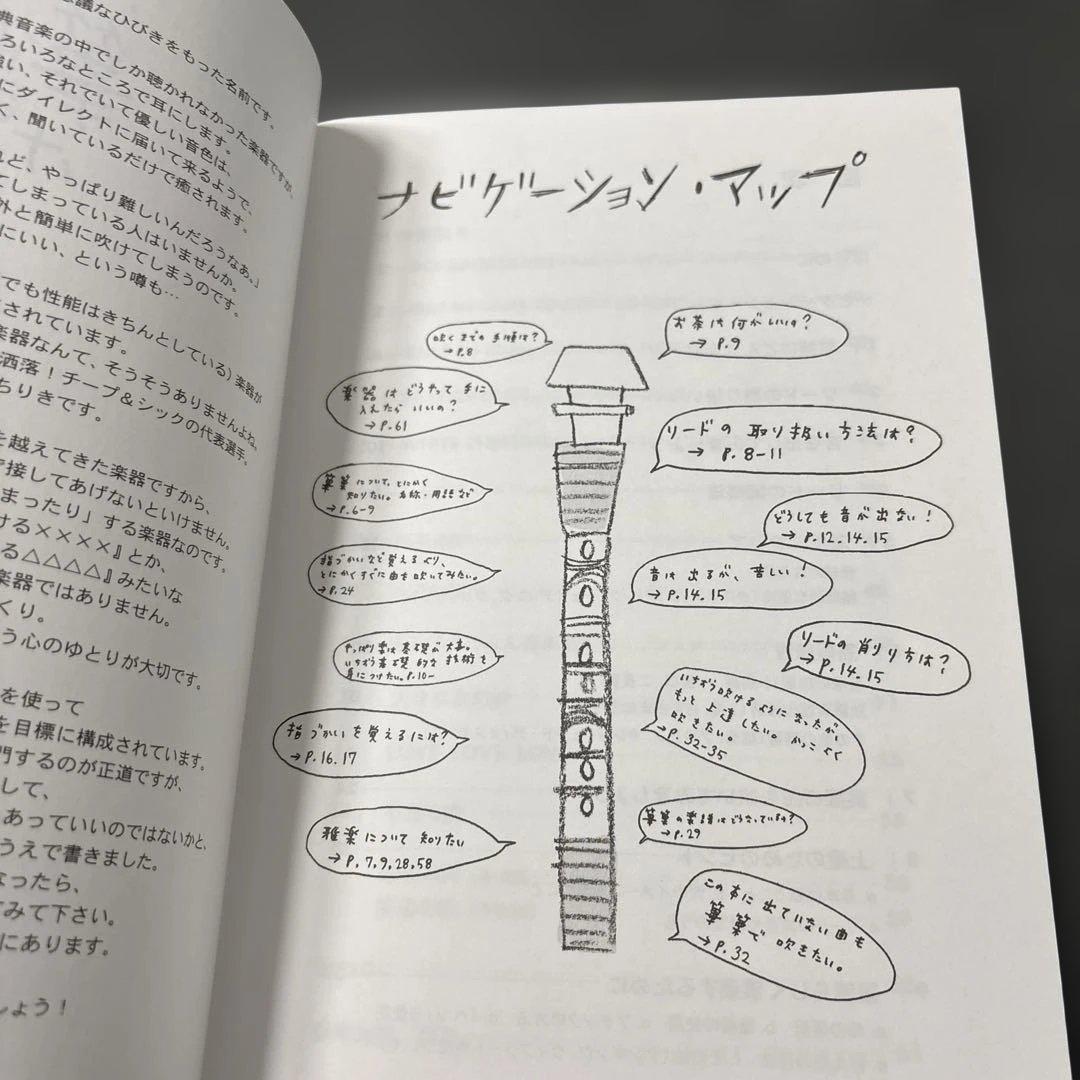 思議なひびきをもった名前です。
典音楽の中でしか聴かれなかった楽器ですが、
ろいろなところで耳にします。
強い、それでいて優しい音色は、
にダイレクトに届いて来るようで、
く、聞いているだけで癒されます。
れど、やっぱり難しいんだろうなあ。」
てしまっている人はいませんか。
外と簡単に吹けてしまうのです。
にいい、という噂も…
でも性能はきちんとしている）楽器が
されています。
楽器なんて、そうそうありませんよね。
洒落！チープ＆シックの代表選手。
ちりきです。
を越えてきた楽器ですから、
接してあげないといけません。
まったり」する楽器なのです。
ける××××』とか、
る△△△△』みたいな
楽器ではありません。
くり。
う心のゆとりが大切です。
を使って
を目標に構成されています。
門するのが正道ですが、
して、
あっていいのではないかと、
うえで書きました。
なったら、
てみて下さい。
にあります。
しょう！
ナビゲーション・マップ
吹くまでの手順は？
→P.8
お茶は何がいいの？
→P.9
楽器はどうやって手に
入れたらいいの？
→P.61
リードの取り扱い方法は？
→P.8-11
篳篥について、とにかく
知りたい。名称・用語など
→P.6-9
どうしても音が出ない！
→P.12.14.15
指づかいなど覚えるより、
とにかくすぐに曲を吹いてみたい。
→P.24
音は出るが、苦しい！
→P.14.15
やっぱり楽は基礎が大事。
いちおう基礎的な技術を
身につけたい。P.10-
リードの削り方は？
→P.14.15
指づかいを覚えるには？
→P.16.17
いちおう吹けるようになったが、
もっと上達したい。かっこよく
吹きたい。
→P.32-35
雅楽について知りたい
→P.7,9,28,58
篳篥の楽譜はどうなっているの？
→P.29
この本に出ていない曲も
篳篥で吹きたい。
→P.32